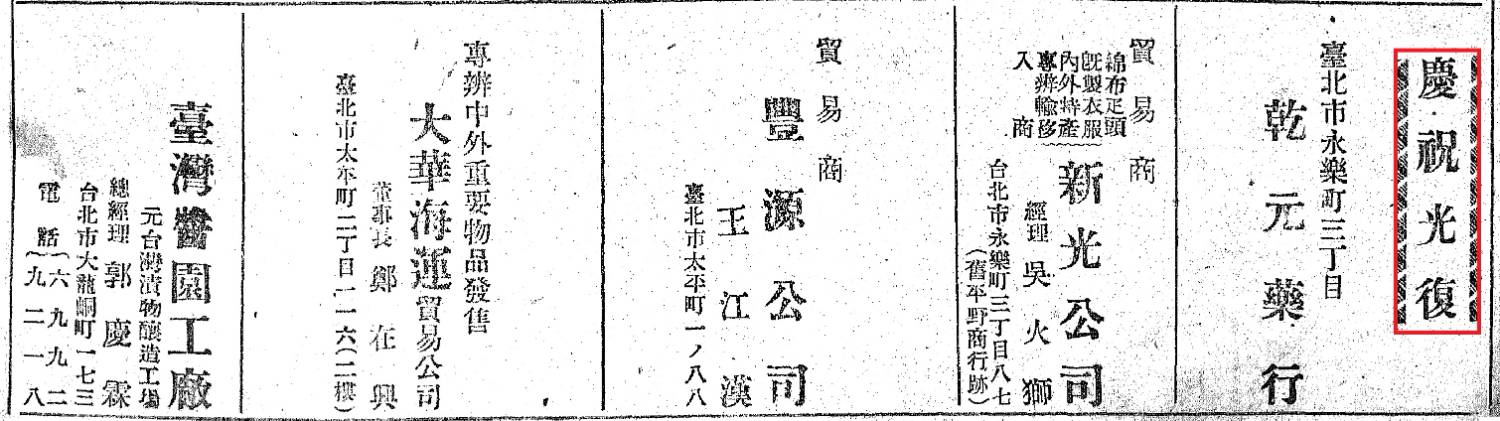 慶祝光復
臺北市永樂町三丁目
乾元藥行
貿易商
綿布疋頭
既製衣服
內外特產
專辦輸移
入商
新光公司
經理 吳火獅
台北市永樂町三丁目八七
(舊平野商行跡)
貿易商
豐源公司
王江漢
臺北市太平町一ノ八八
專辦中外重要物品發售
大華海運貿易公司
董事長 鄭在興
臺北市太平町二丁目一一六(二樓)
臺灣醬園工廠
元台灣漬物釀造工場
總經理 郭慶霖
台北市大龍峒町一七三
電話(六九九二
九二一八